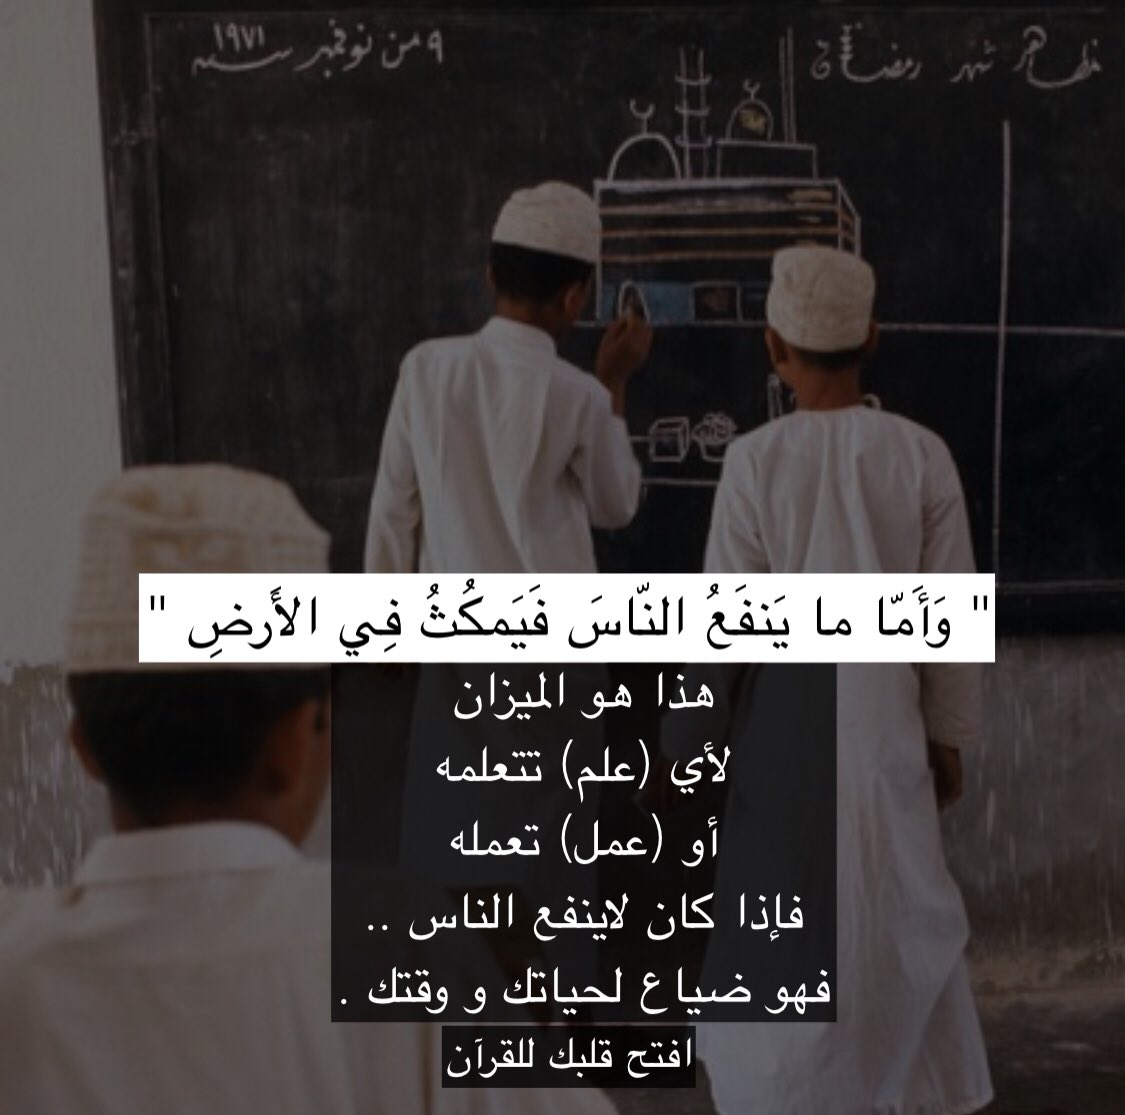 مظاهر شهر رمضان
٩ من نوفمبر سنة ١٩٧١
" وَأَمّا ما يَنفَعُ النّاسَ فَيَمكُثُ فِي الأَرضِ "
هذا هو الميزان
لأي (علم) تتعلمه
أو (عمل) تعمله
فإذا كان لاينفع الناس ..
فهو ضياع لحياتك و وقتك .
افتح قلبك للقرآن